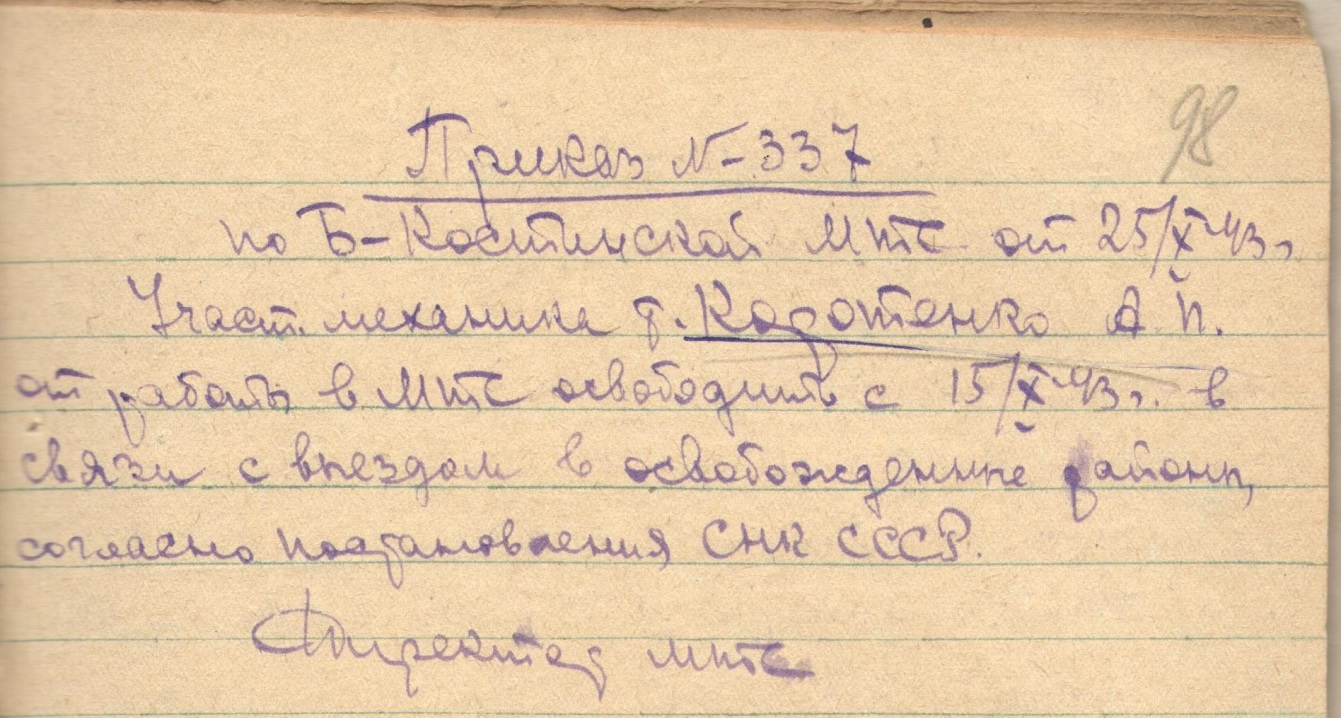 98
Приказ №-337
по Б-Костинской МТС от 25/X-43г.
Участ. механика т. Кодотенко А.П.
от работы в МТС освободить с 15/X-43г. в
связи с выездом в освобожденные районы,
согласно постановления СНК СССР.
Директор МТС